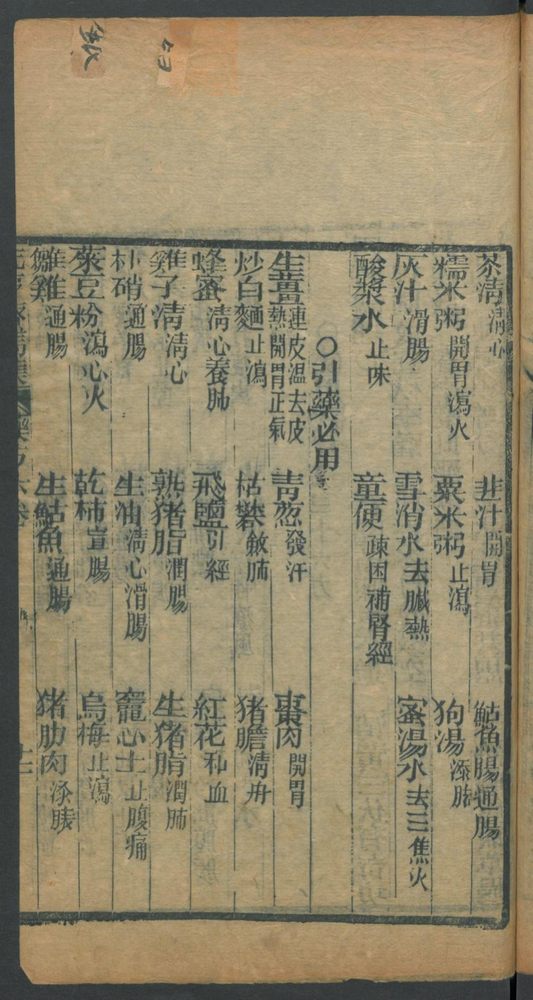 茶清清心　韭汁開胃　鮎魚腸通腸
糯米粥開胃瀉火　粟米粥止瀉　狗湯添膘
灰汁滑腸　雪消水去臟熱　蜜湯水去三焦火
酸漿水止味　童便疎困補腎經
〇引藥必用
生薑連皮温去皮熱開胃正氣　青葱發汗　棗肉開胃
炒白麵止瀉　枯礬斂肺　猪膽清肝
蜂蜜清心養肺　飛鹽引經　紅花和血
雞子清清心　熟猪脂潤腸　生猪脂潤肺
朴硝通腸　生油清心滑腸　竈心土止腹痛
菉豆粉瀉心火　乾柿宣腸　烏梅止瀉
雛雞通腸　生鮎魚通腸　猪肋肉添膘